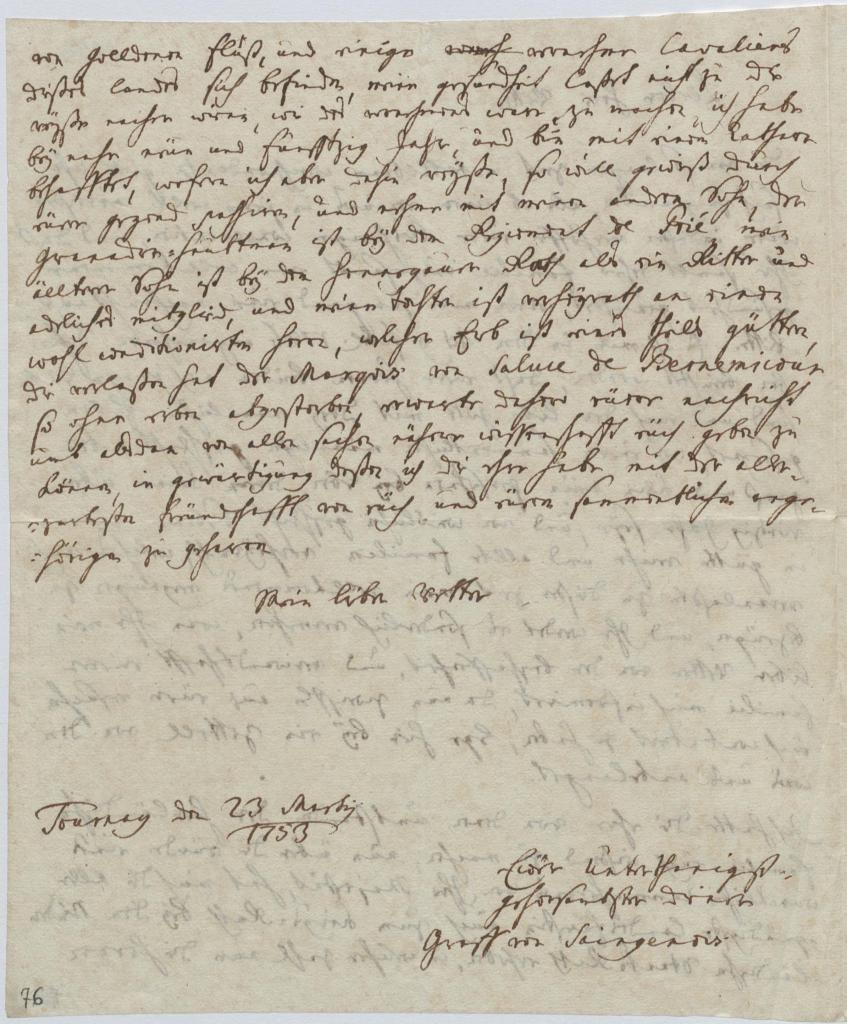 von gulldenen Flüß, und einige vornehme Cavaliers
dises landes sich befinden, mein gesundheit lasset nicht zu die
reyße nacher wien, wie des vornehmens ware, zu machen, ich habe
bey nahe neün und fünfftzig Jahr, und bin mit einem Catharr
behafftet, wofern ich aber dahin reyße, so will gewiß durch
eüere gegend passiren, und nehme mit meinen andern Sohn, der
Granadir-haubtman ist bey dem Regiment de Prié mein
ällterer Sohn ist bey den Hennegauer Rath als ein Ritter und
adeliches mitglied, und meine tochter ist verheyrath an einen
wohl conditionirten herrn, welcher Erb ist eines theils gütter,
die verlaßen hat der Marquis von Saluce de Bernemicour
so ohne erben abgestorben, erwarte dahero eüere nachricht
umb alsdan von allen sachen nähere wissenschafft eüch geben zu
können, in gewärtigung deßen ich die ehre habe mit der aller-
-zartesten freündschafft von eüch und eüren sammentlichen ange-
-hörigen zu geharren
Mein lieber Vetter
Tournay den 23 Martij
1753
Eüer Unterthenigst-
gehorsambster diener
Graff von Saingenois
76